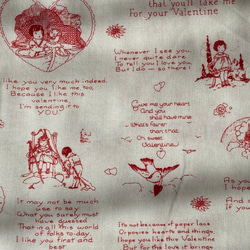 that you'll take me
For your Valentine.
Whenever I see you
I never quite dare
To tell you I love you
But I do – so there!
I like you very much indeed.
I hope you like me, too,
Because I like this
valentine
I'm sending it to
YOU!
Give me your heart
And you
shall have mine
Who's fairer
than that
Oh sweet
Valentine
It may not be much
use to say
What you surely must
have guessed
That in all this world
of folks to-day
I like you first and
best
As
And
you
It's not because of paper lace
Or posies, hearts and things
I hope you like this Valentine
But for the love it brings